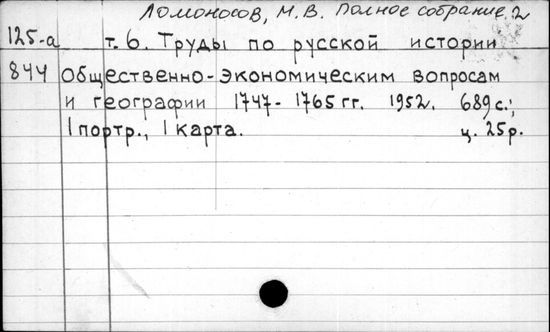 Ломоносов, М. В. Полное собрание. 2
125-а т. 6. Труды по русской истории
844 общественно-экономическим вопросам
и географии 1747- 1765 гг. 1952. 689 с.;
1 портр., 1 карта. ц. 25 р.